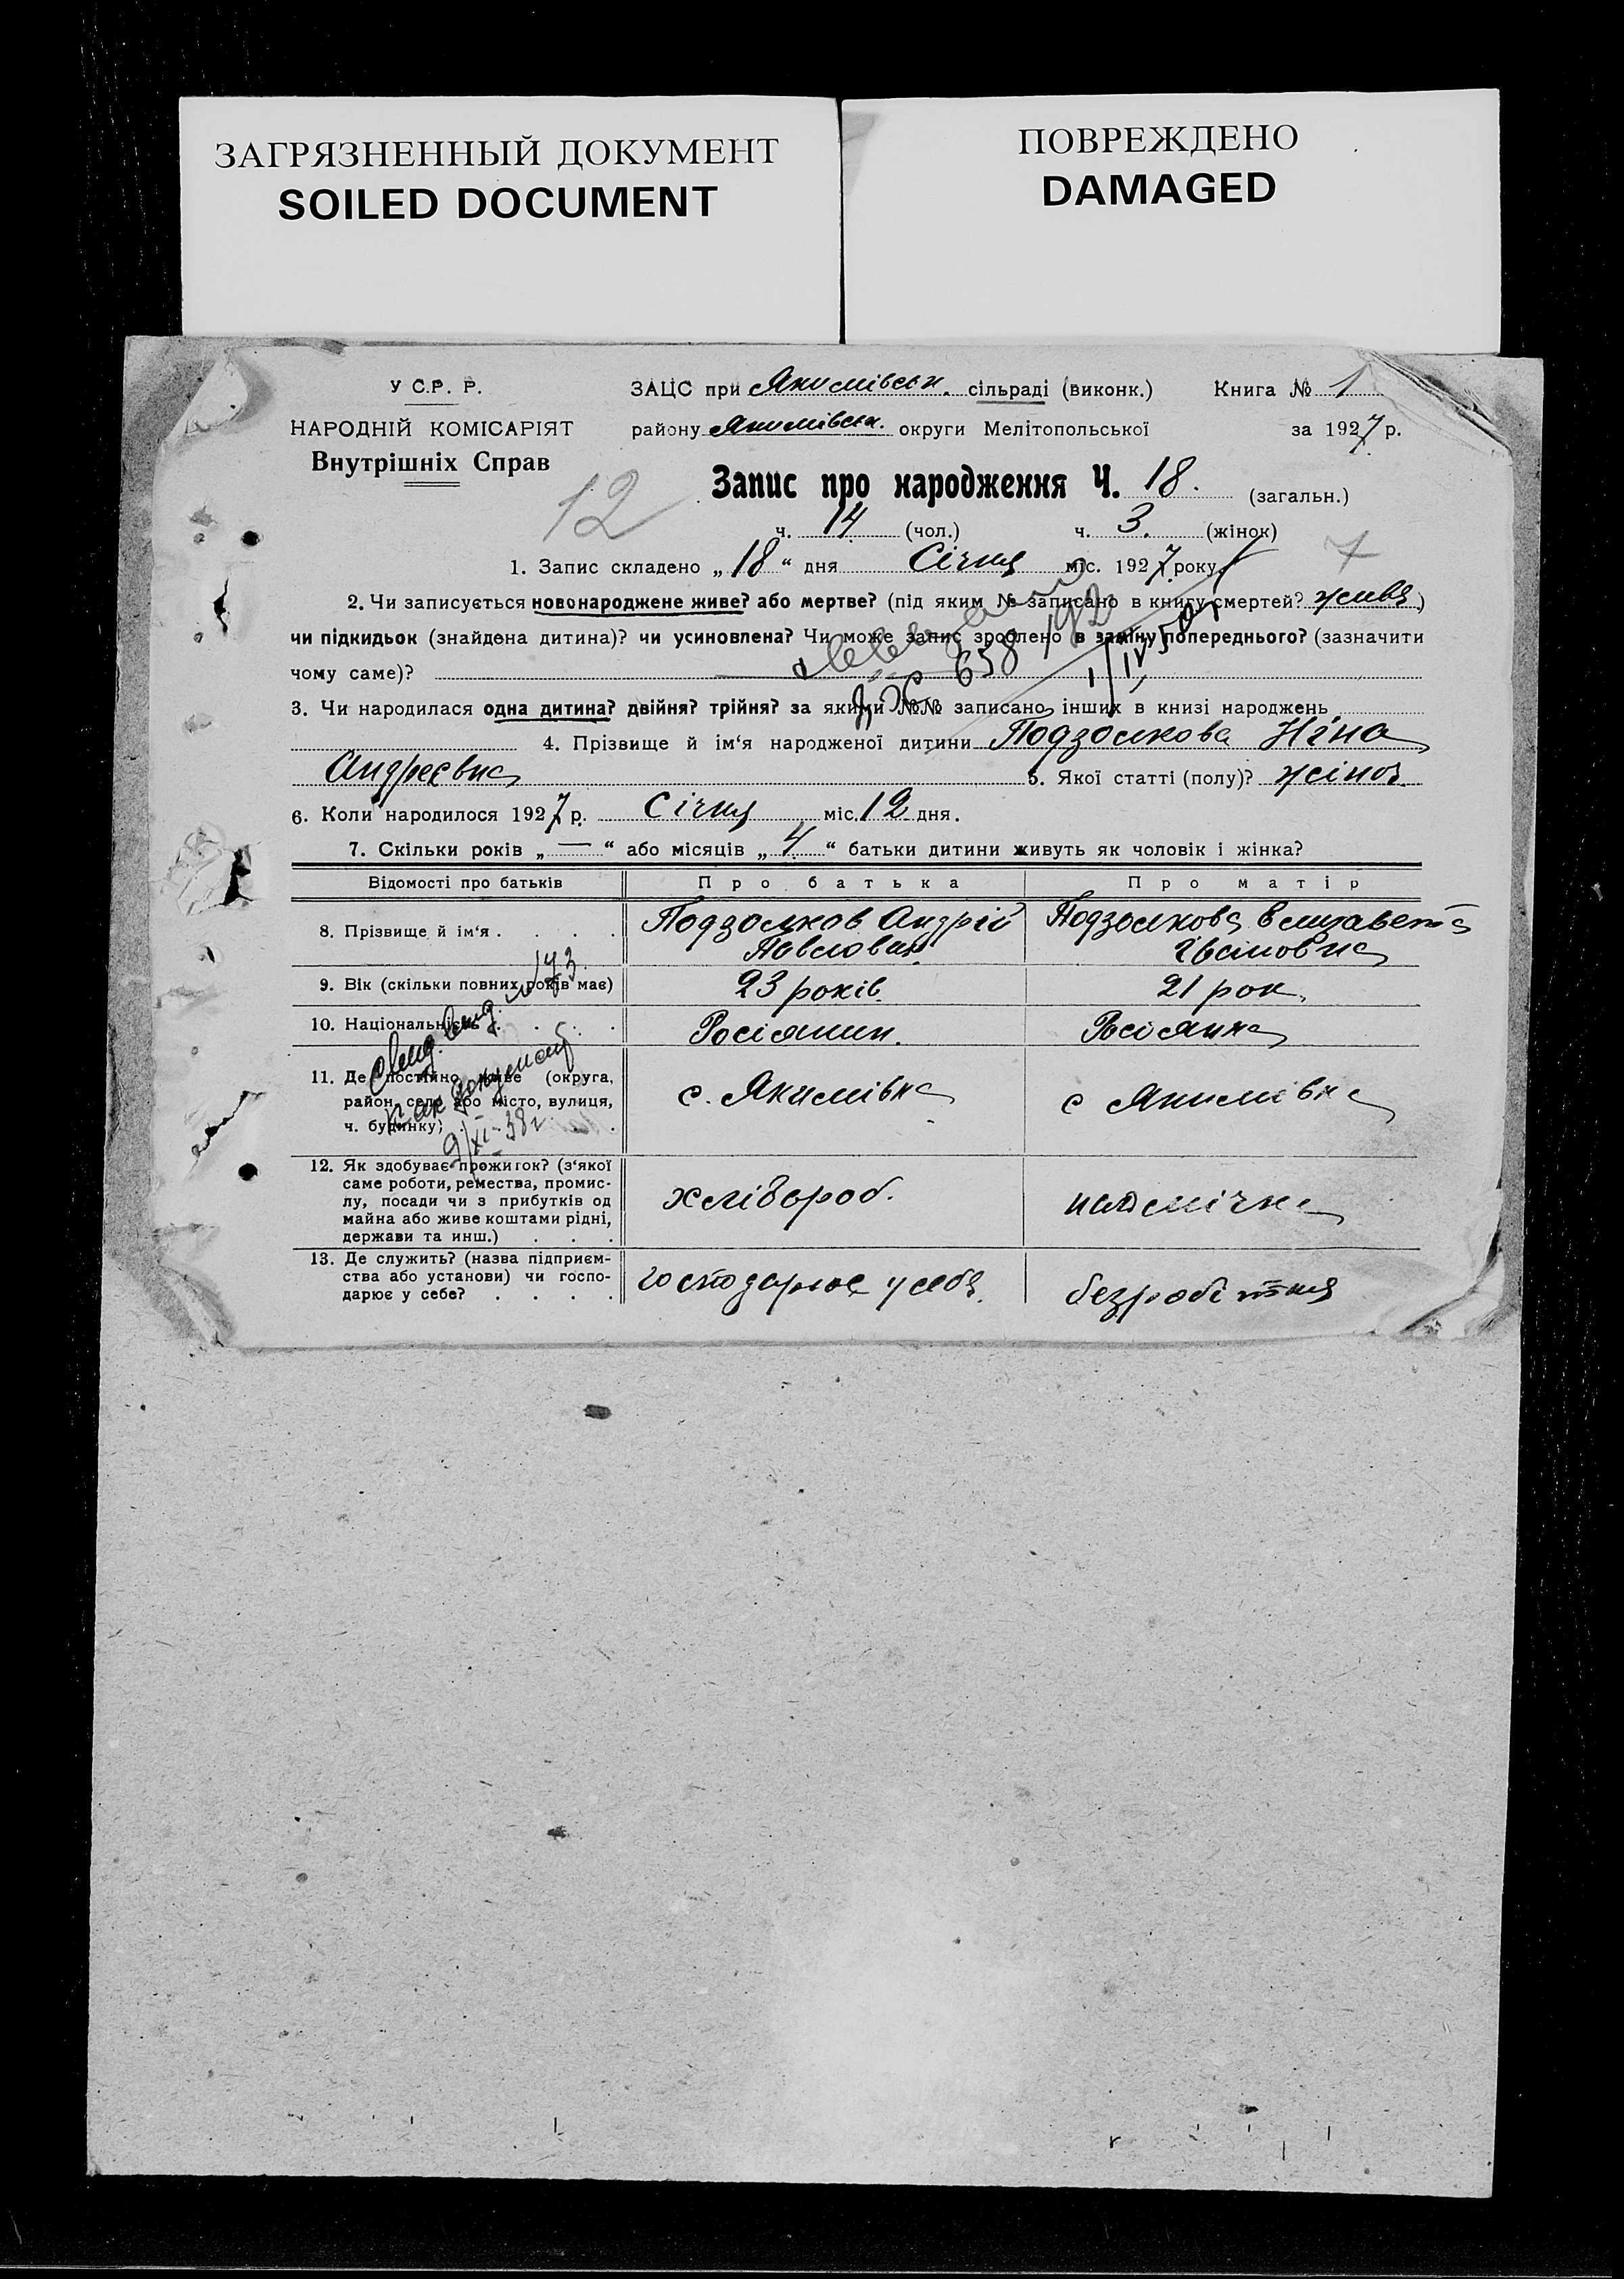 ЗАГРЯЗНЕННЫЙ ДОКУМЕНТ
SOILED DOCUMENT
ПОВРЕЖДЕНО
DAMAGED
У С.Р. Р.
НАРОДНІЙ КОМІСАРІЯТ
Внутрішніх Справ
ЗАЦС при Якимівськ. сільраді (виконк.) Книга № 1
району Якимівськ. округи Мелітопольської за 1927 р.
12
Запис про народження Ч. 18. (загальн.)
ч. 14 (чол.) ч. 3. (жінок)
7
1. Запис складено „18“ дня Січня міс. 1927 року
2. Чи записується новонароджене живе? або мертве? (під яким № записано в книгу смертей? живя)
чи підкидьок (знайдена дитина)? чи усиновлена? Чи може запис зроблено в заміну попереднього? (зазначити
чому саме)?
658 192
3. Чи народилася одна дитина? двійня? трійня? за якими №№ записано інших в книзі народжень
4. Прізвище й ім‘я народженої дитини Подзолкова Ніна
Андреєвна 5. Якої статті (полу)? жіноч.
6. Коли народилося 1927 р. Січня міс. 12 дня.
7. Скільки років „—“ або місяців „4“ батьки дитини живуть як чоловік і жінка?
Відомості про батьків Про батька Про матір
8. Прізвище й ім‘я . . . . Подзолков Андрій Подзолкова Єлизавета
Павлович Івановна
9. Вік (скільки повних років має) 23 років. 21 рок.
10. Національність . . . . Росіянин. Росіянка
11. Де постійно живе (округа,
район, село або місто, вулиця,
ч. будинку) с. Якимівка с Якимівка
9/XI-38г
12. Як здобуває прожиток? (з‘якої
саме роботи, ремества, промис-
лу, посади чи з прибутків од
майна або живе коштами рідні,
держави та инш.) . . . хлібороб. наймичка
13. Де служить? (назва підприєм-
ства або установи) чи госпо-
дарює у себе? . . . . господарює у себя. безробітня